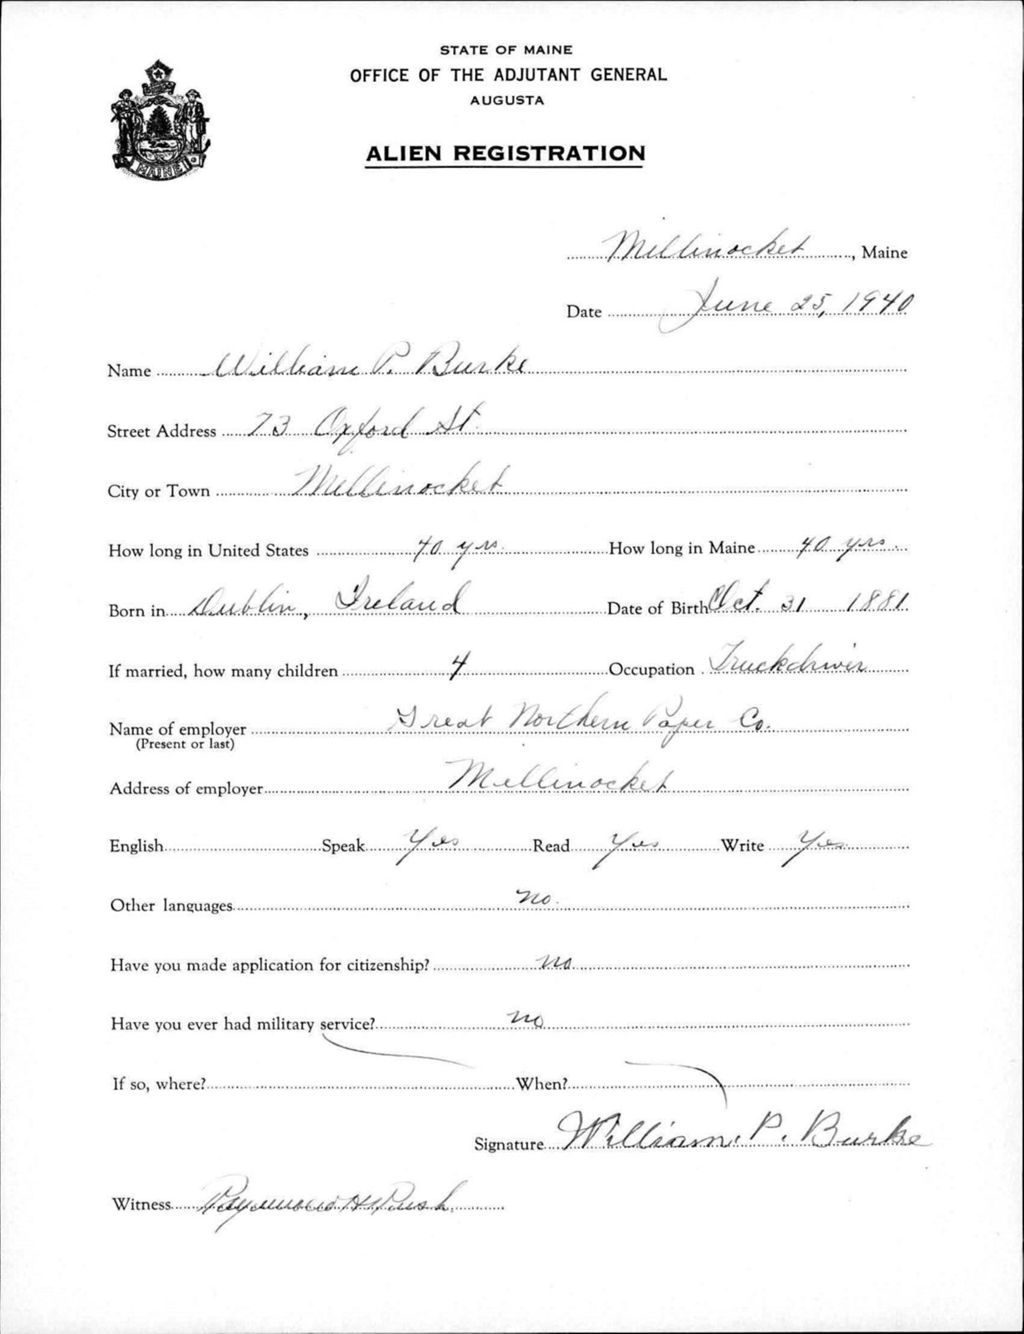 STATE OF MAINE
OFFICE OF THE ADJUTANT GENERAL
AUGUSTA
ALIEN REGISTRATION
MAINE
Millinocket, Maine
Date June 25, 1940
Name William P. Burke
Street Address 73 Oxford St.
City or Town Millinocket
How long in United States 40 yrs. How long in Maine 40 yrs.
Born in Dublin, Ireland Date of Birth Oct. 31 1881
If married, how many children 4 Occupation Truckdriver
Name of employer Great Northern Paper Co.
(Present or last)
Address of employer Millinocket
English Speak Yes Read Yes Write Yes
Other languages no.
Have you made application for citizenship? no
Have you ever had military service? no
If so, where? When?
Signature William. P. Burke
Witness Raymond H Rush